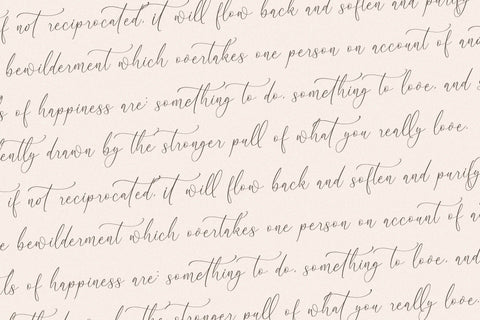 if not reciprocated, it will flow back and soften and purify
bewilderment which overtakes one person on account of ano
ls of happiness are: something to do, something to love, and s
ently drawn by the stronger pull of what you really love.
if not reciprocated, it will flow back and soften and purify
e bewilderment which overtakes one person on account of a
ls of happiness are: something to do, something to love, and
drawn by the stronger pull of what you really love.